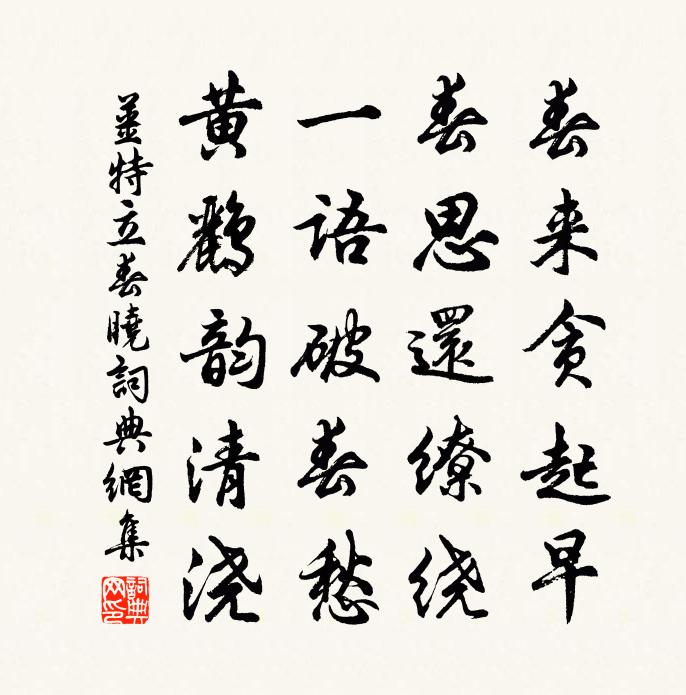 春来贪起早
春思還缭绕
一語破春愁
黄鸝韵清浇
姜特立春曉詞典網集
詞典網印